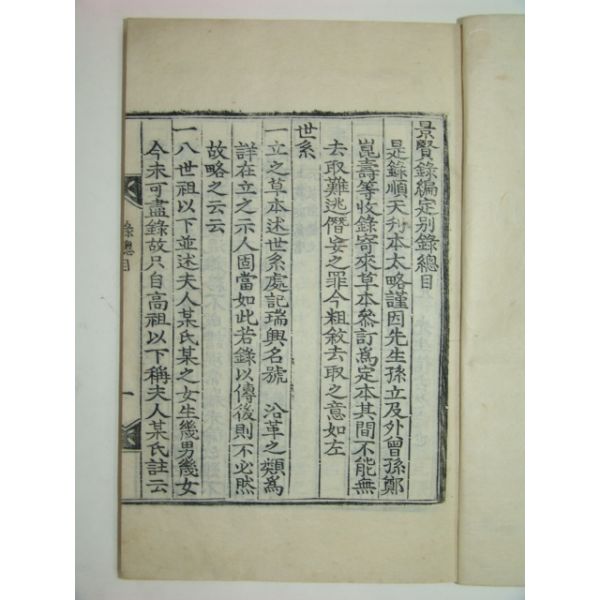 景賢錄編定別錄總目
是錄順天刋本太略謹因先生孫立及外曾孫鄭
崑壽等收錄寄來草本參訂爲定本其間不能無
去取難逃僭妄之罪今粗敘去取之意如左
世系
一立之草本述世系處記瑞興名號 沿革之類爲
詳在立之示人固當如此若錄以傳後則不必然
故略之云云
一八世祖以下並述夫人某氏某之女生幾男幾女
今未可盡錄故只自高祖以下稱夫人某氏註云
錄總目
一